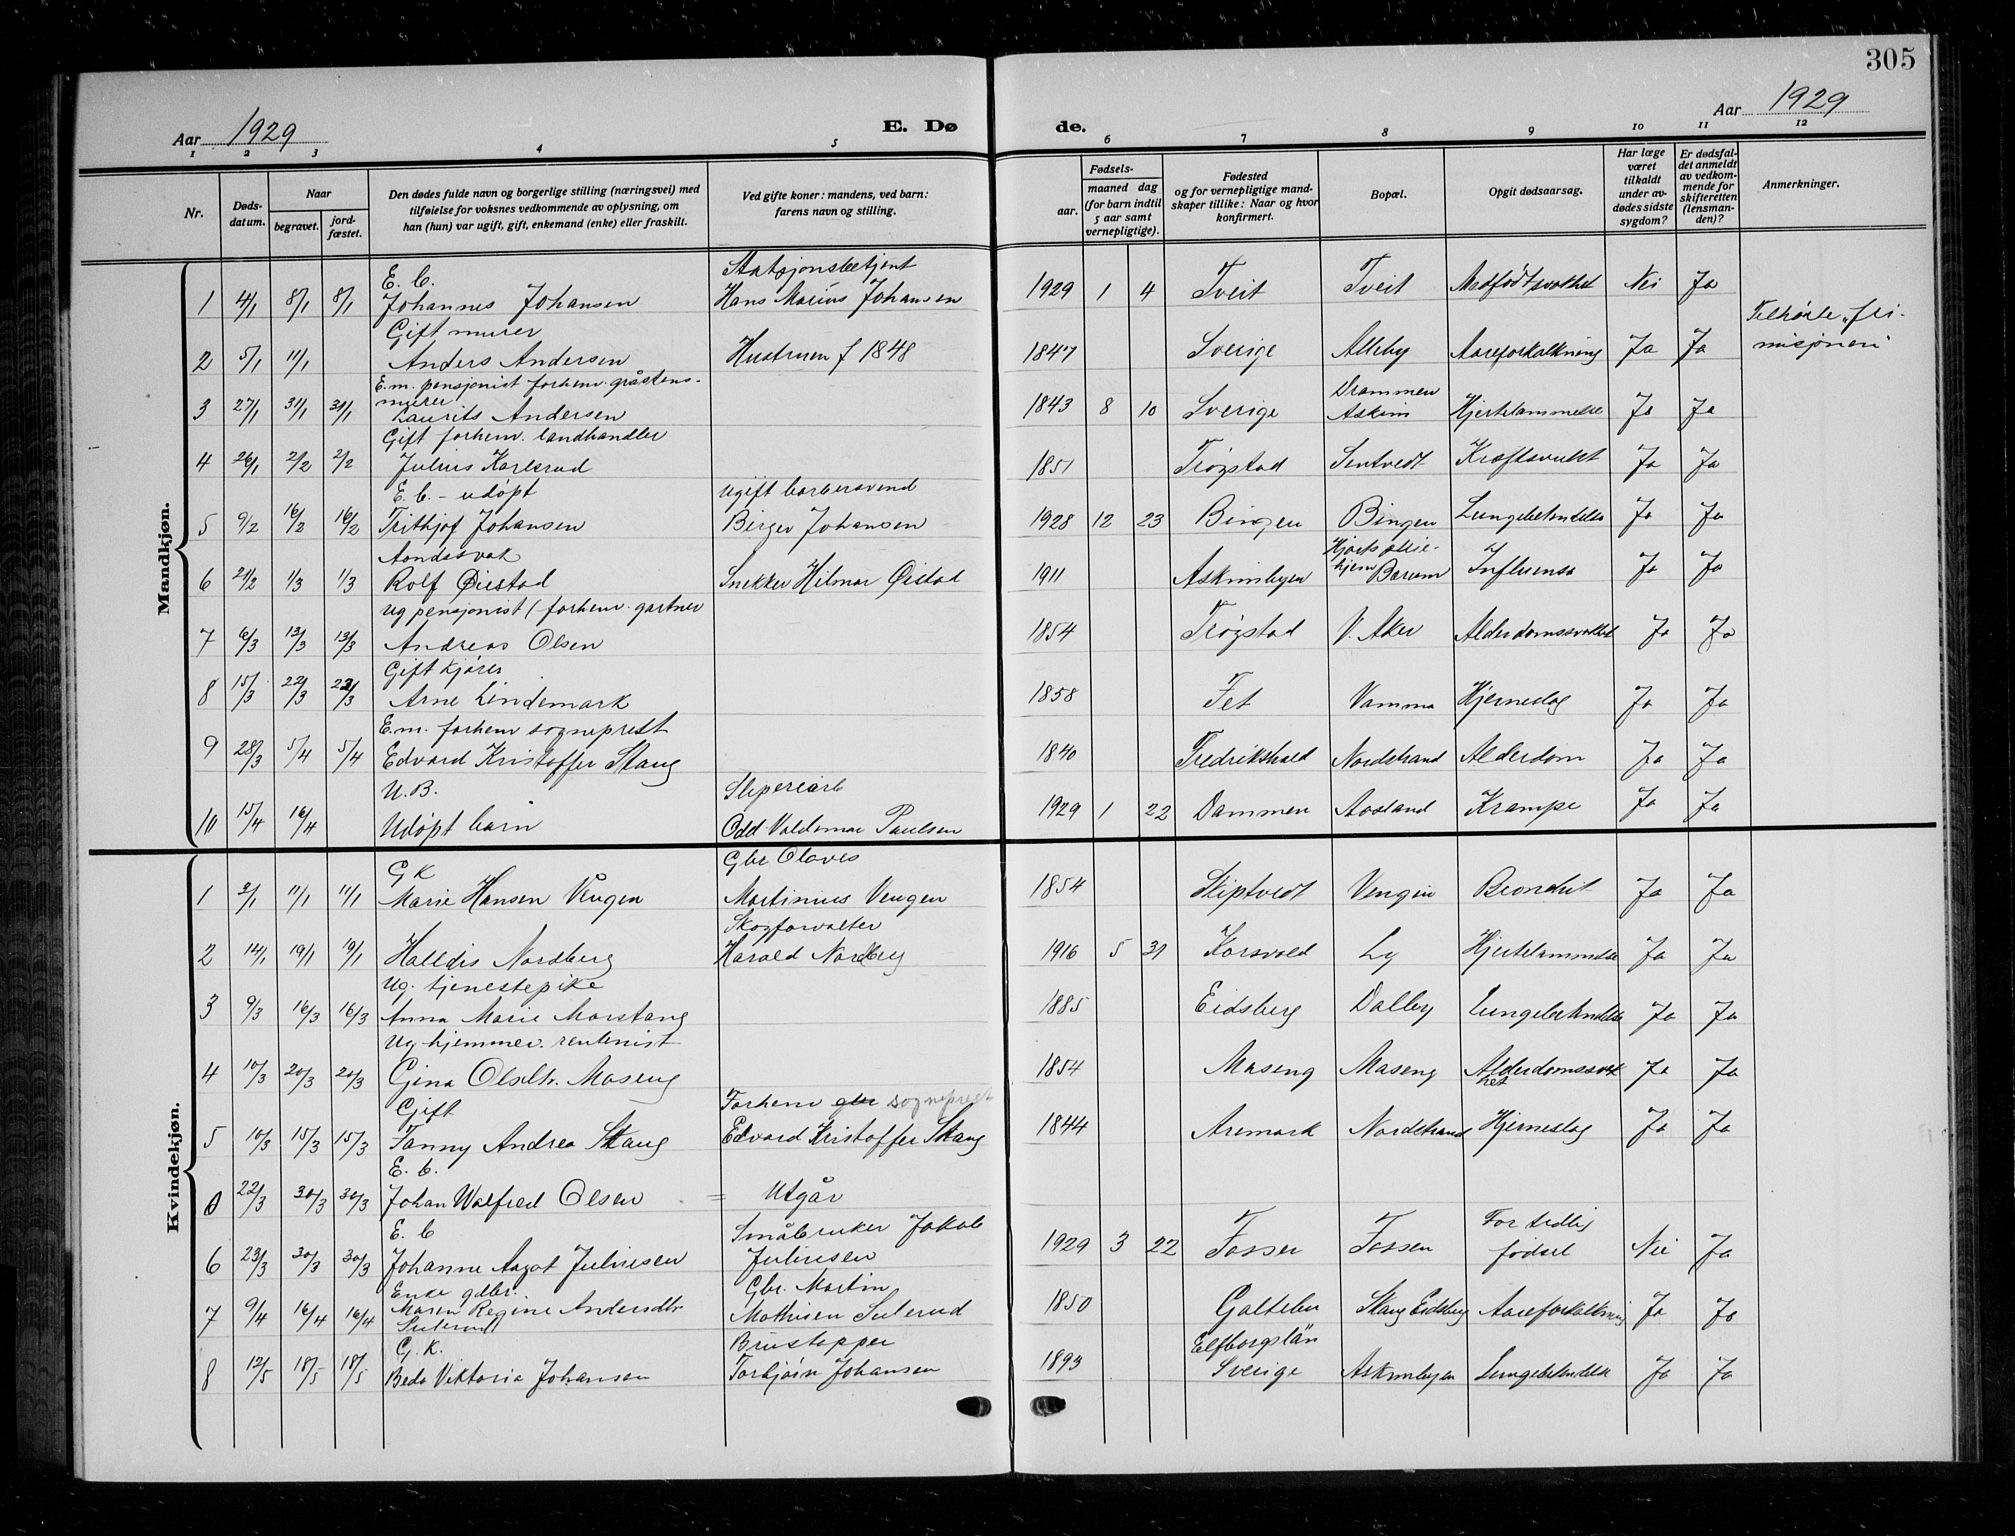 305
Aar 1929
E. Dø
de.
Aar 1929
1 2 3 4 5 6 7 8 9 10 11 12
Nr.
Dødsdatum.
Naar
begravet.
jordfæstet.
Den dødes fulde navn og borgerlige stilling (næringsvei) med
tilføielse for voksnes vedkommende av oplysning, om
han (hun) var ugift, gift, enkemand (enke) eller fraskilt.
Ved gifte koner: mandens, ved barn:
farens navn og stilling.
Fødsels-
aar.
maaned dag
(for barn indtil
5 aar samt
vernepligtige).
Fødested
og for vernepligtige mand-
skaper tillike: Naar og hvor
konfirmert.
Bopæl.
Opgit dødsaarsag.
Har læge
været
tilkaldt
under av-
dødes sidste
sygdom?
Er dødsfal-
det anmeldt
av vedkom-
mende for
skifteretten
(lensman-
den)?
Anmerkninger.
Mandkjøn.
E. b. Stasjonsbetjent
1 4/1 8/1 8/1 Johannes Johansen Hans Marius Johansen 1929 1 4 Tveit Tveit Medfødt svakhet Nei Ja
Gift murer Tilhørte „fri-
2 5/1 11/1 Anders Andersen Hustruen f 1848 1847 Sverige Alleby Aareforkalkning Ja Ja misjonen"
E.m. pensjonist forhenv. gråstens-
murer Drammen
3 27/1 31/1 31/1 Laurits Andersen 1843 8 10 Sverige Askim Hjertelammelse Ja Ja
Gift forhenv. landhandler
4 26/1 2/2 2/2 Julius Karlsrud 1851 Trøgstad Sentvedt Kraftsvikt Ja Ja
E. b. - udøpt ugift barbersvend
5 9/2 16/2 16/2 Frithjof Johansen Birger Johansen 1928 12 23 Bingen Bingen Lungebetendelse Ja Ja
Aandssvak Hjorts pleie-
6 21/2 1/3 1/3 Rolf Øiestad Snekker Hilmar Øistad 1911 Askimbyen hjem Bærum Influensa Ja Ja
Ug pensjonist / forhenv. gartner
7 6/3 13/3 13/3 Andreas Olsen 1854 Trøgstad V. Aker Alderdomssvakhet Ja Ja
Gift kjører
8 15/3 22/3 22/3 Arne Lindemark 1858 Fet Vamma Hjerneslag Ja Ja
E.m. forhenv sogneprest
9 28/3 5/4 5/4 Edvard Kristoffer Skaug 1840 Fredrikshald Nordstrand Alderdom Ja Ja
U.B. Sliperiarb
10 15/4 16/4 Udøpt barn Odd Valdemar Paulsen 1929 1 22 Dammen Aosland Krampe Ja Ja
Kvindekjøn.
G K Gbr Olaves
1 3/1 11/1 11/1 Marie Hansen Vengen Martinius Vengen 1854 Skiptvedt Vengen Bronchit Ja Ja
Skogforvalter
2 14/1 19/1 19/1 Halldis Nordberg Harald Nordberg 1916 5 31 Korsvold Ly Hjertelammelse Ja Ja
Ug. tjenestepike
3 9/3 16/3 16/3 Anna Marie Morstang 1885 Eidsberg Dalby Lungebetendelse Ja Ja
Ug hjemmev. rentenist
4 10/3 20/3 20/3 Gina Olsdtr. Maseng 1854 Maseng Maseng Alderdomssvak
het Ja Ja
Gift Forhenv gbr sogneprest
5 10/3 15/3 15/3 Fanny Andrea Skaug Edvard Kristoffer Skaug 1844 Aremark Nordstrand Hjerneslag Ja Ja
E. b.
0 22/3 30/3 30/3 Johan Walfred Olsen = Utgår
E. b Småbruker Jakob For tidlig
6 23/3 30/3 30/3 Johanne Aagot Juliussen Juliussen 1929 3 22 Fossen Fossen fødsel Nei Ja
Enke gdbr. Gbr. Martin
7 9/4 16/4 16/4 Maren Regine Andersdtr Mathisen Sulerud 1850 Galteber Skaug Eidsberg Aareforkalkning Ja Ja
Sulerud
G. K. Brustopper Elfborgslän
8 12/5 18/5 18/5 Beda Viktoria Johansen Torbjørn Johansen 1893 Sverige Askimbyen Lungebetendelse Ja Ja